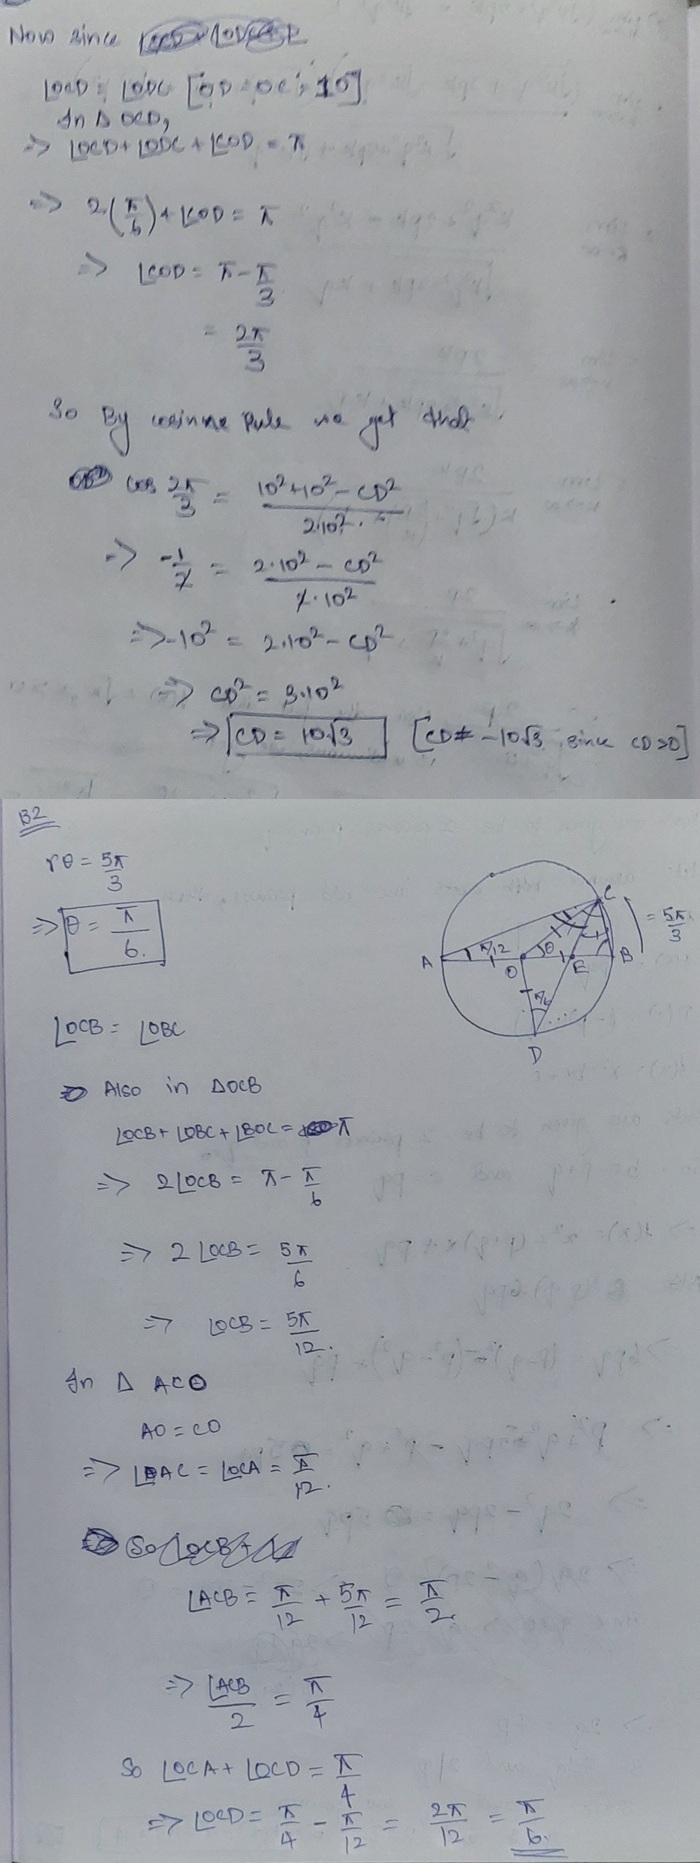 Now since
∠OCD = ∠ODC [OD = OC = 10]
In Δ OCD,
⇒ ∠OCD + ∠ODC + ∠COD = π
⇒ 2(π/6) + ∠COD = π
⇒ ∠COD = π - π/3
= 2π/3
So By cosinne Rule we get that
cos 2π/3 = (10² + 10² - CD²)/(2·10²)
⇒ -1/2 = (2·10² - CD²)/(2·10²)
⇒ -10² = 2·10² - CD²
⇒ CD² = 3·10²
⇒ CD = 10√3 [CD ≠ -10√3, since CD>0]
B2
rθ = 5π/3
⇒ θ = π/6.
C
= 5π/3
A
π/12
O
θ
E
B
π/6
D
∠OCB = ∠OBC
Also in ΔOCB
∠OCB + ∠OBC + ∠BOC = π
⇒ 2∠OCB = π - π/6
⇒ 2∠OCB = 5π/6
⇒ ∠OCB = 5π/12.
In Δ ACO
AO = CO
⇒ ∠OAC = ∠OCA = π/12.
∠ACB = π/12 + 5π/12 = π/2.
⇒ ∠ACB/2 = π/4
So ∠OCA + ∠OCD = π/4
⇒ ∠OCD = π/4 - π/12 = 2π/12 = π/6.